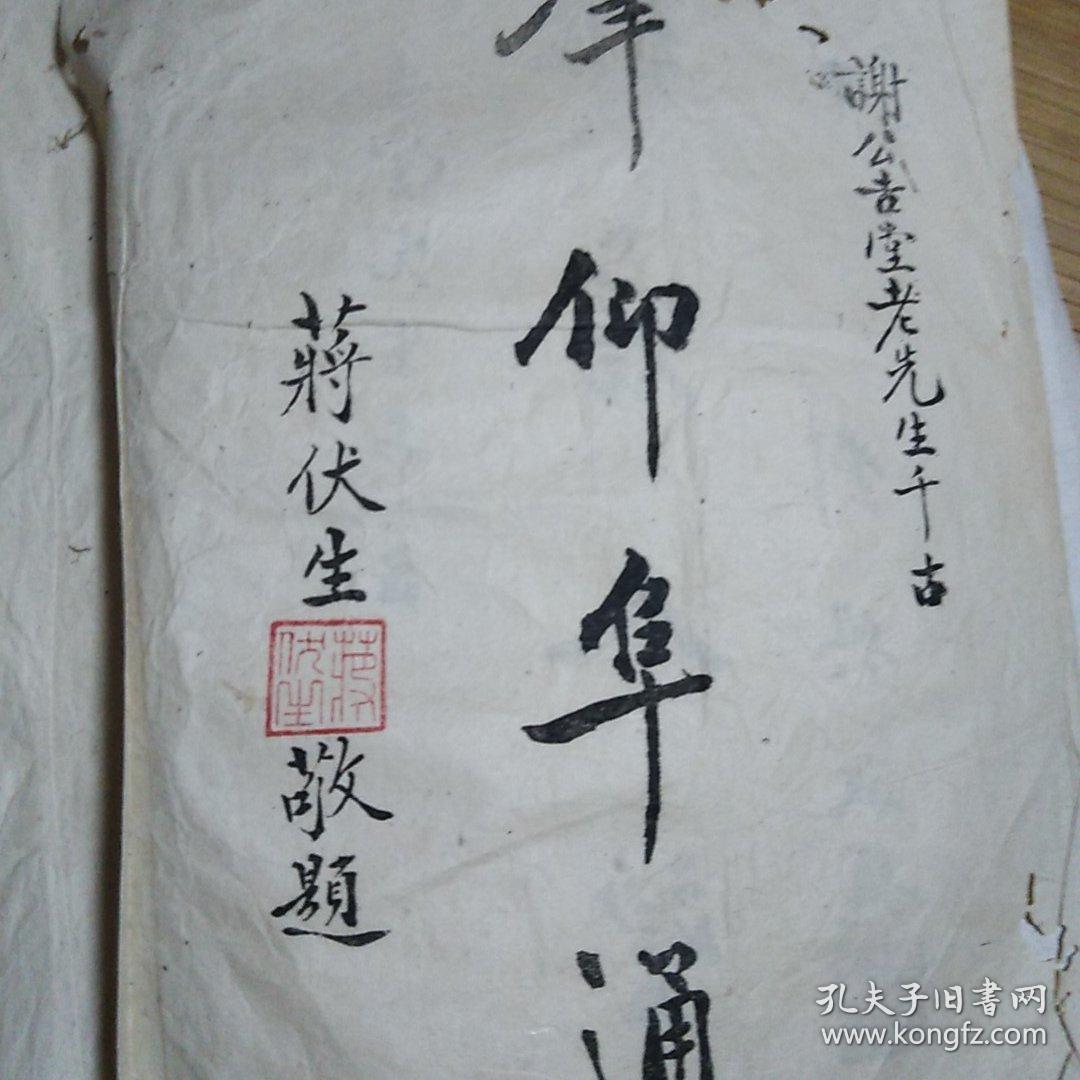 謝公吉堂老先生千古
仰隼
蔣伏生
蔣伏生
敬題
孔夫子旧書网
www.kongfz.com